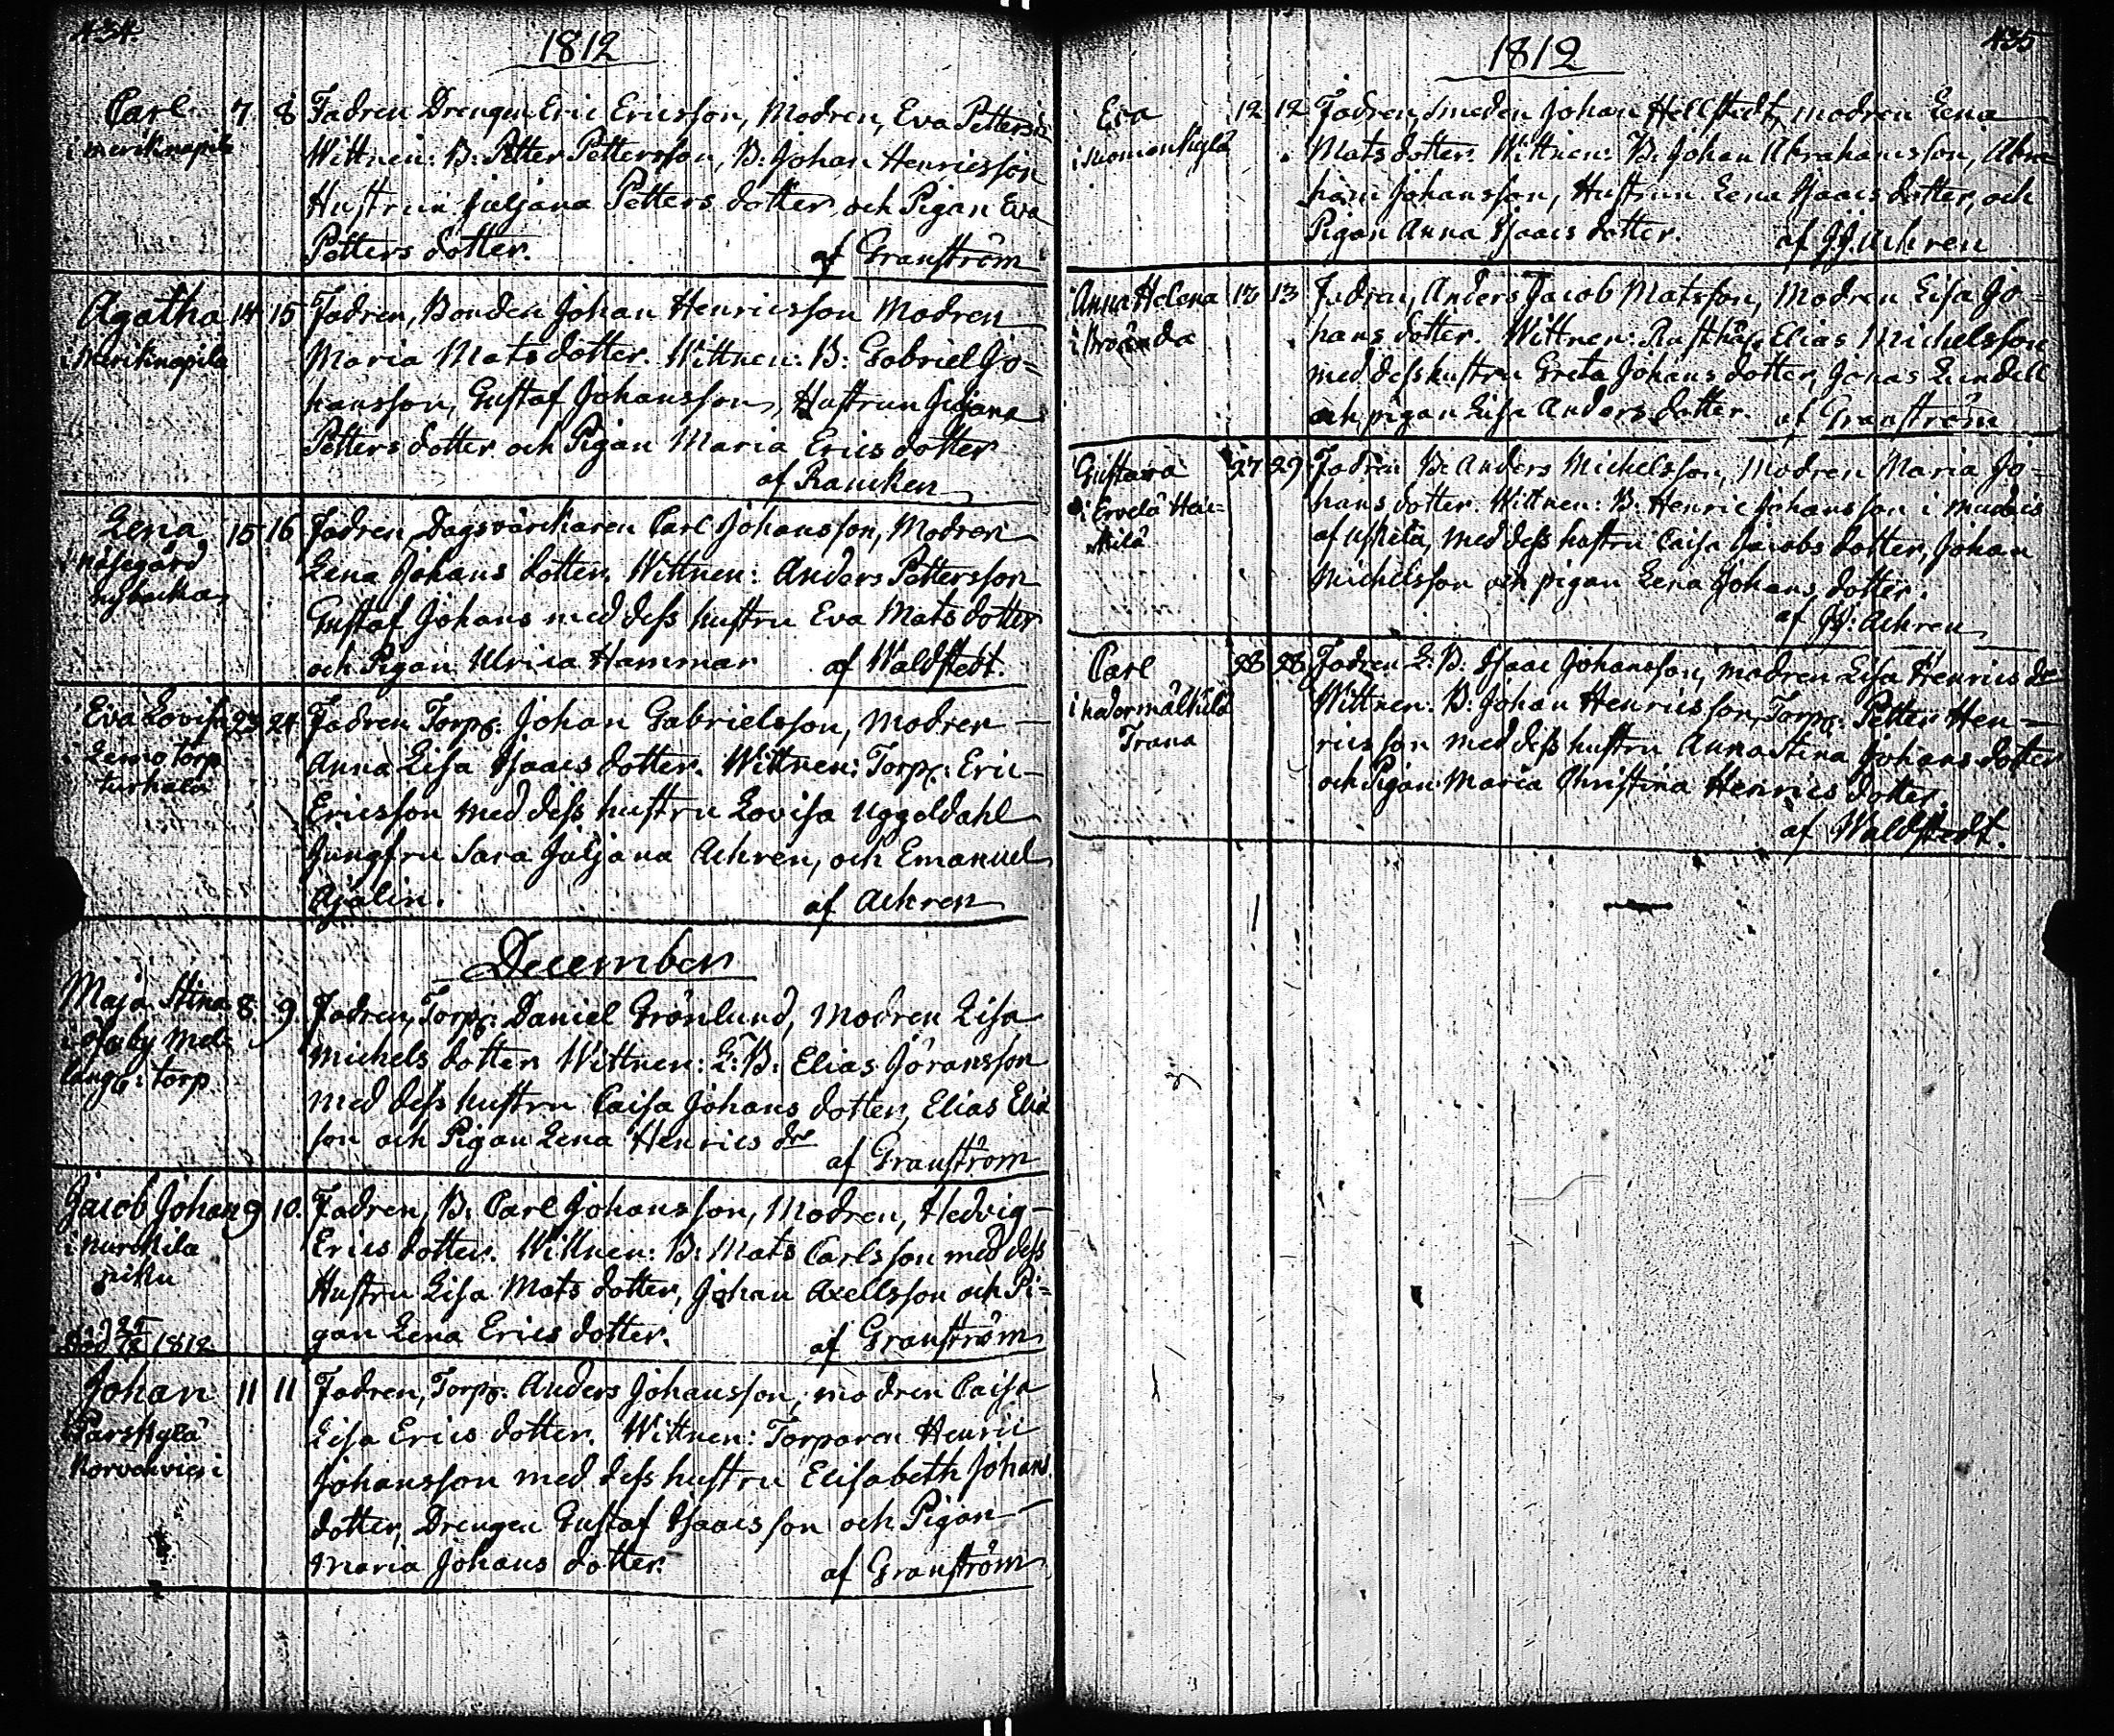 434.
1812
Carl 7 8 Fadren Drengen Eric Ericsson, Modren, Eva Petters
i meriknapila Wittnen: B: Petter Pettersson, B: Johan Henricsson
Hustrun Juljana Petters dotter och Pigan Eva
Petters dotter. af Granström
Agatha 14 15 Fadren, Bonden Johan Henricsson Modren
i merikinapila Maria Mats dotter. Wittnen: B: Gabriel Jo=
hansson, Gustaf Johansson, Hustrun Juljana
Petters dotter och Pigan Maria Erics dotter
af Rancken
Lena 15 16 Fadren, Dagsvärckaren Carl Johansson, Modren
i näsegård Lena Johans dotter. Wittnen: Anders Pettersson
nybacka Gustaf Johans med dess hustru Eva Mats dotter
och Pigan Ulrica Hammar af Waldstedt.
Eva Lovisa 23 24 Fadren Torp: Johan Gabrielsson, Modren
i Lemo torp Anna Lisa Isaacs dotter. Wittnen: Torp: Eric
turkala Ericsson med dess hustru Lovisa Uggeldahl
Jungfru Sara Juljana Achrén, och Emanuel
Ajalin. af Achren
December
Maja Stina 8. 9. Fadren, Torp: Daniel Grönlund, Modren Lisa
Michels dotter Wittnen: L: B: Elias Jöransson
torp med dess hustru Caisa Johans dotter, Elias
son och Pigan Lena Henrics dr af Granström
Jacob Johan 9 10. Fadren, B: Carl Johansson, Modren, Hedvig
i kurckila Erics dotter. Wittnen: B: Mats Carlsson med dess
Hustru Lisa Mats dotter, Johan Axellsson och Pi=
Död 25/12 1812 gan Lena Erics dotter. af Granström
Johan 11 11 Fadren, Torp: Anders Johansson, modren Caisa
Parskylä Lisa Erics dotter. Wittnen: Torparen Henric
Johansson med dess hustru Elisabeth Johans
dotter, Drengen Gustaf Isaacsson och Pigan
Maria Johans dotter. af Granström
435
1812
Eva 12 12 Fadren, Smeden Johan Hellstedt, modren Lena
i suomenkylä Mats dotter. Wittnen: B: Johan Abrahamsson, Abra
ham Johansson, Hustrun Lena Isaacs dotter, och
Pigan Anna Isaacs dotter. af JJ. Achren
Anna Helena 12 13 Fadren, Anders Jacob Matsson, Modren Lisa Jo=
hans dotter. Wittnen: Rusthål: Elias Michelsson
med dess hustru Greta Johans dotter, Jonas Lundell
och pigan Lisa Anders dotter. af Granström
Gustava 27 29 Fadren B: Anders Michelsson, Modren Maria Jo=
i Ervelä Hei= hans dotter. Wittnen: B: Henric Johansson i
kilä af Uskela, med dess hustru Caisa Jacobs dotter, Johan
Michelsson och pigan Lena Johans dotter.
af JJ: Achren
Carl 28 28 Fadren L: B: Isaac Johansson, modren Lisa Henrics dr
i Wittnen: B: Johan Henricsson, Torp: Petter Hen=
Trana ricsson med dess hustru Anna Stina Johans dotter
och Pigan Maria Christina Henrics dotter.
af Waldstedt.